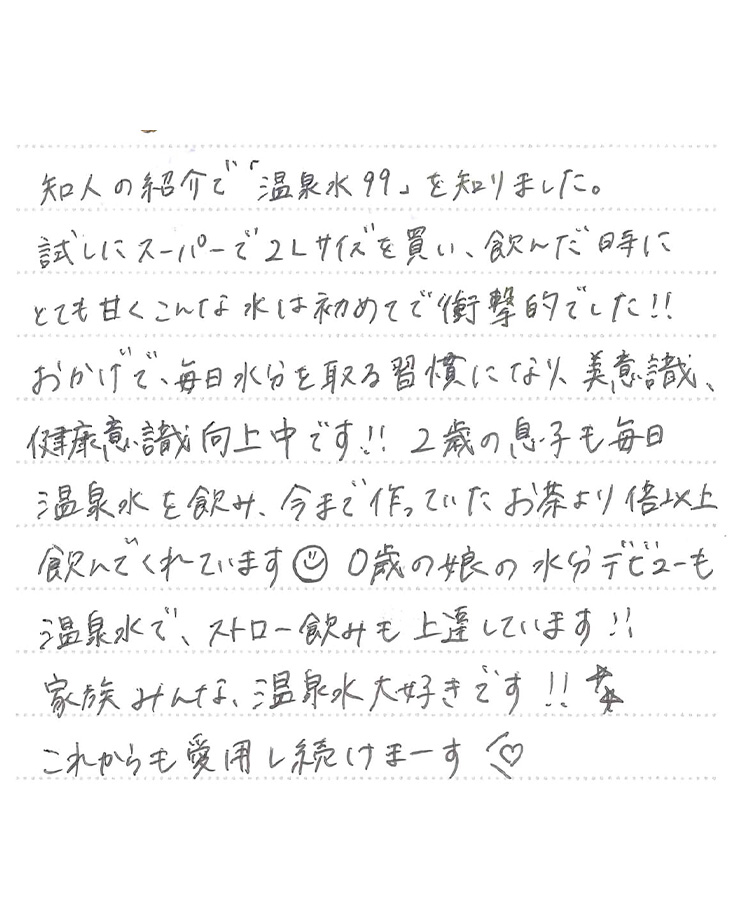 知人の紹介で「温泉水99」を知りました。
試しにスーパーで2Lサイズを買い、飲んだ時に
とても甘くこんな水は初めてで衝撃的でした!!
おかげで、毎日水分を取る習慣になり、美意識、
健康意識向上中です!! 2歳の息子も毎日
温泉水を飲み、今まで作っていたお茶より倍以上
飲んでくれています☺ 0歳の娘の水分デビューも
温泉水で、ストロー飲みも上達しています!!
家族みんな、温泉水大好きです!!
これからも愛用し続けまーす♡